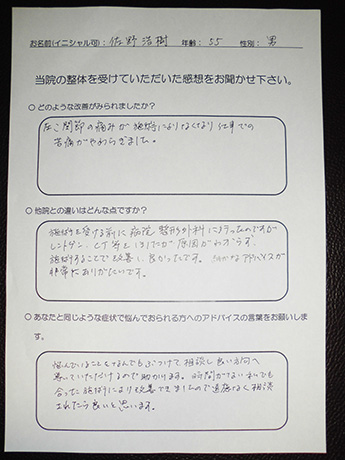 お名前(イニシャル可): 佐野 浩樹 年齢: 55 性別: 男
当院の整体を受けていただいた感想をお聞かせ下さい。
○ どのような改善がみられましたか?
左こ関節の痛みが施術によりなくなり 仕事での
苦痛がやわらぎました。
○ 他院との違いはどんな点ですか?
施術を受ける前に病院 整形外科に行ったのですが
レントゲン、CT等とりましたが原因がわからず、
施術することで改善し良かったです。細かなアドバイスが
非常にありがたいです。
○ あなたと同じような症状で悩んでおられる方へのアドバイスの言葉をお願いしま
す。
悩んでいることをなんでもぶつけて相談し良い方向へ
導いていただけるので助かります。時間がない私でも
合った施術により改善できましたので遠慮なく相談
されたら良いと思います。